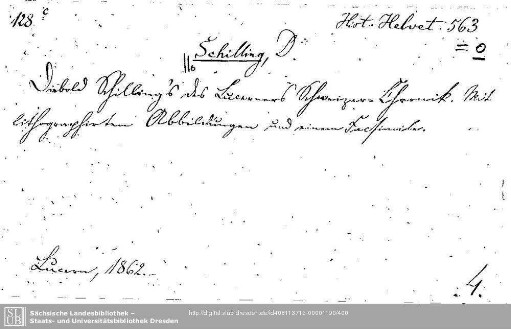 128 c
Hist. Helvet. 563
= 0
Schilling, D.
Diebold Schilling's des Lucerners Schweizer-Chronik. Mit
lithographirten Abbildungen und einem Facsimile.
Lucern, 1862.
4.
Sächsische Landesbibliothek –
Staats- und Universitätsbibliothek Dresden